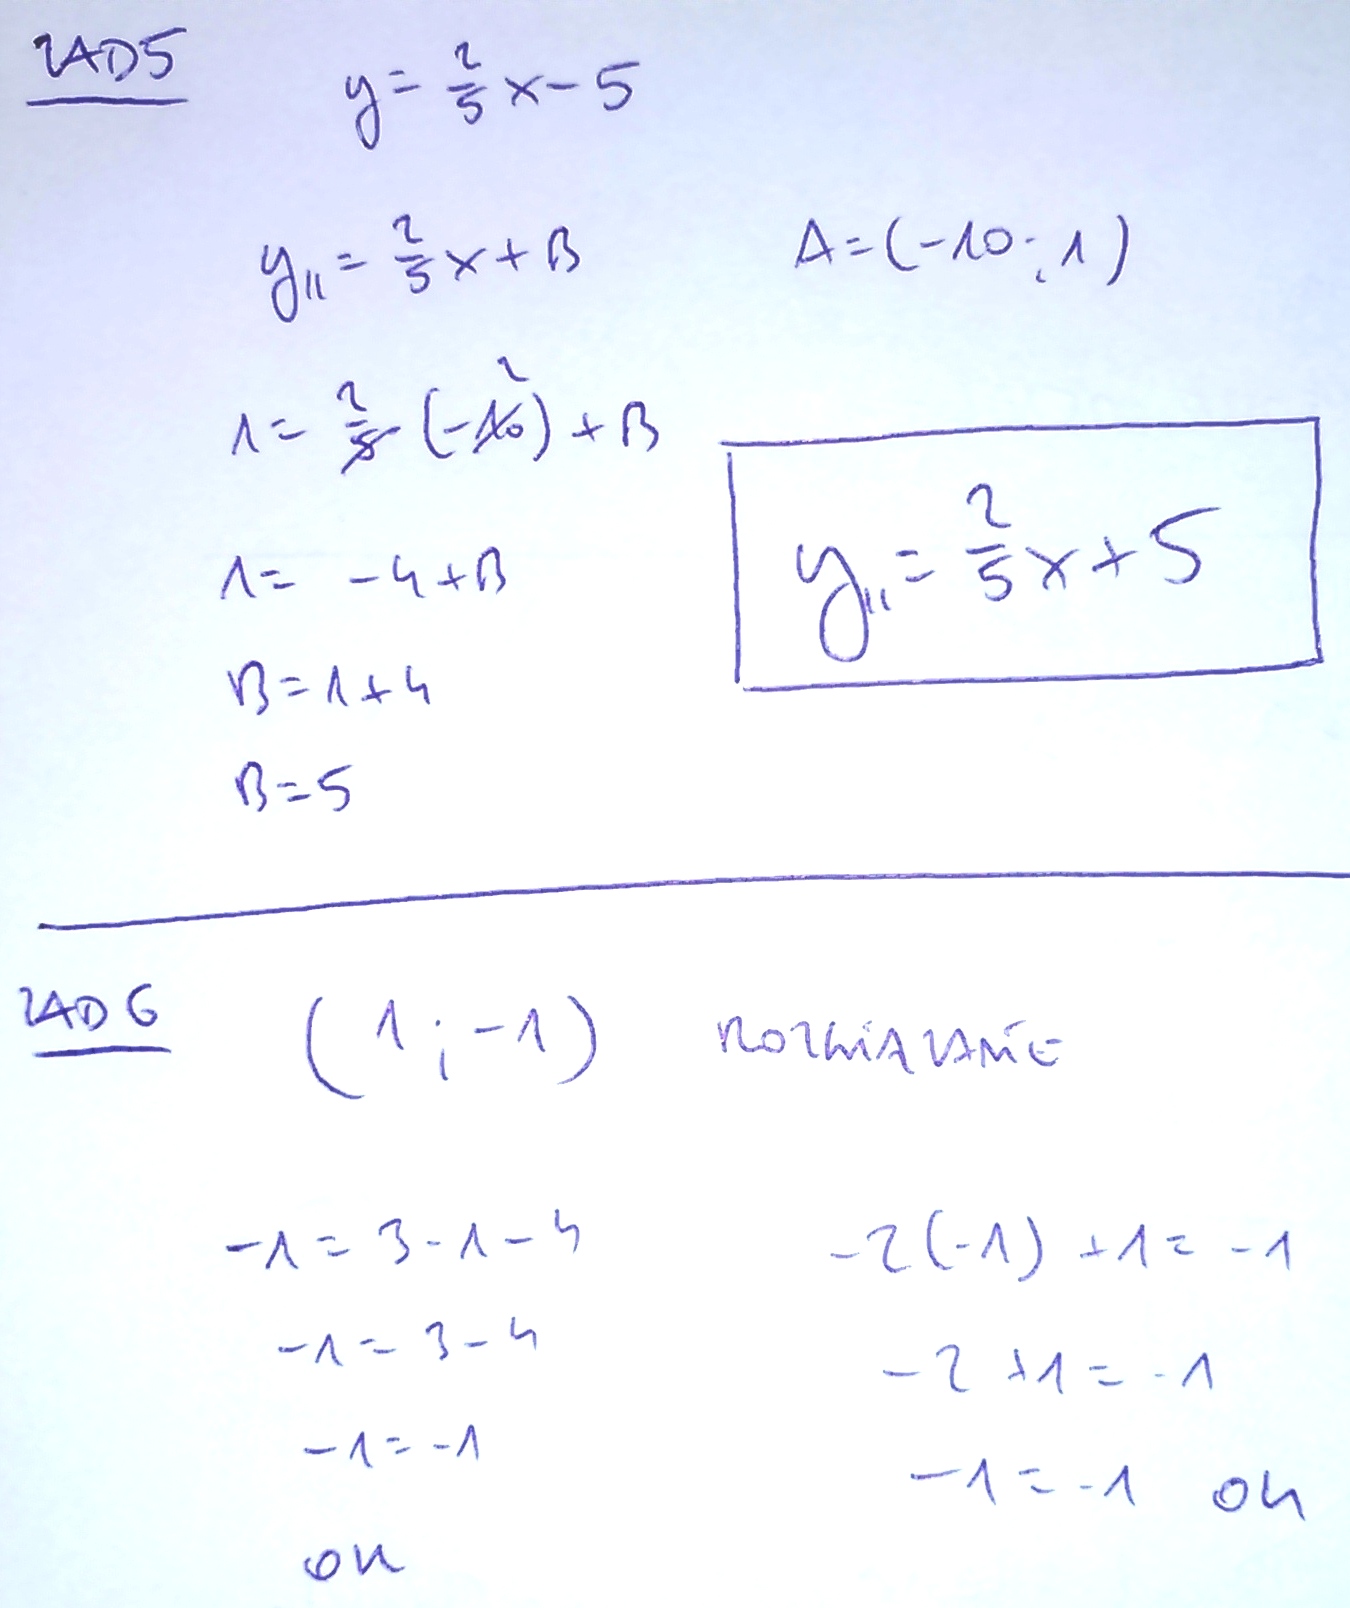 ZAD5
y = 2/5 x - 5
y₁₁ = 2/5 x + B A = (-10 ; 1)
1 = 2/5 (-10) 2 + B
1 = -4 + B
y₁₁ = 2/5 x + 5
B = 1 + 4
B = 5
ZAD 6 (1 ; -1) ROZWIAZANIE
-1 = 3 - 1 - 4 -2(-1) + 1 = -1
-1 = 3 - 4 -2 + 1 = -1
-1 = -1 -1 = -1 ok
ok